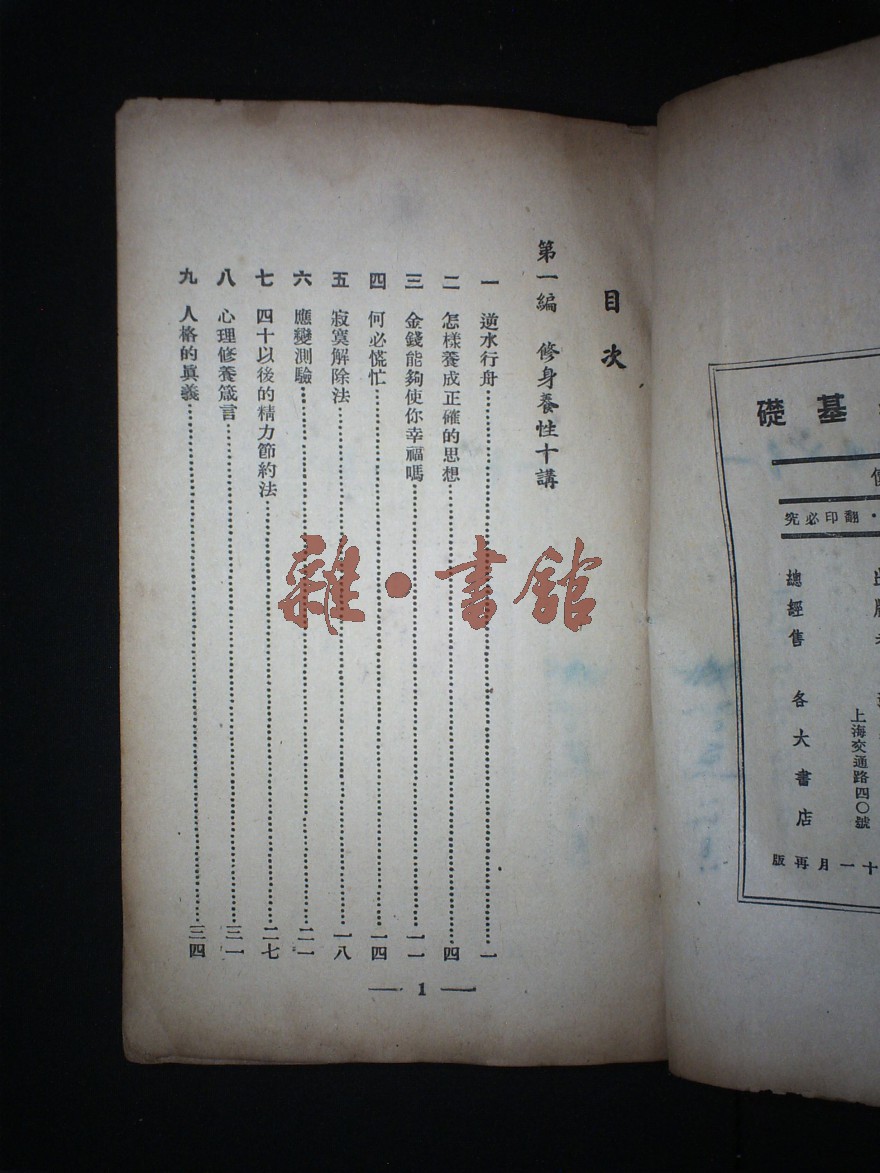 目次
第一編 修身養性十講
一 逆水行舟……一
二 怎樣養成正確的思想……四
三 金錢能夠使你幸福嗎……一一
四 何必慌忙……一四
五 寂寞解除法……一八
六 應變測驗……二一
七 四十以後的精力節約法……二七
八 心理修養箴言……三一
九 人格的眞義……三四
— 1 —
雜·書館
基礎
·翻印必究
上海交通路四〇號
總經售 各大書店
十一月再版